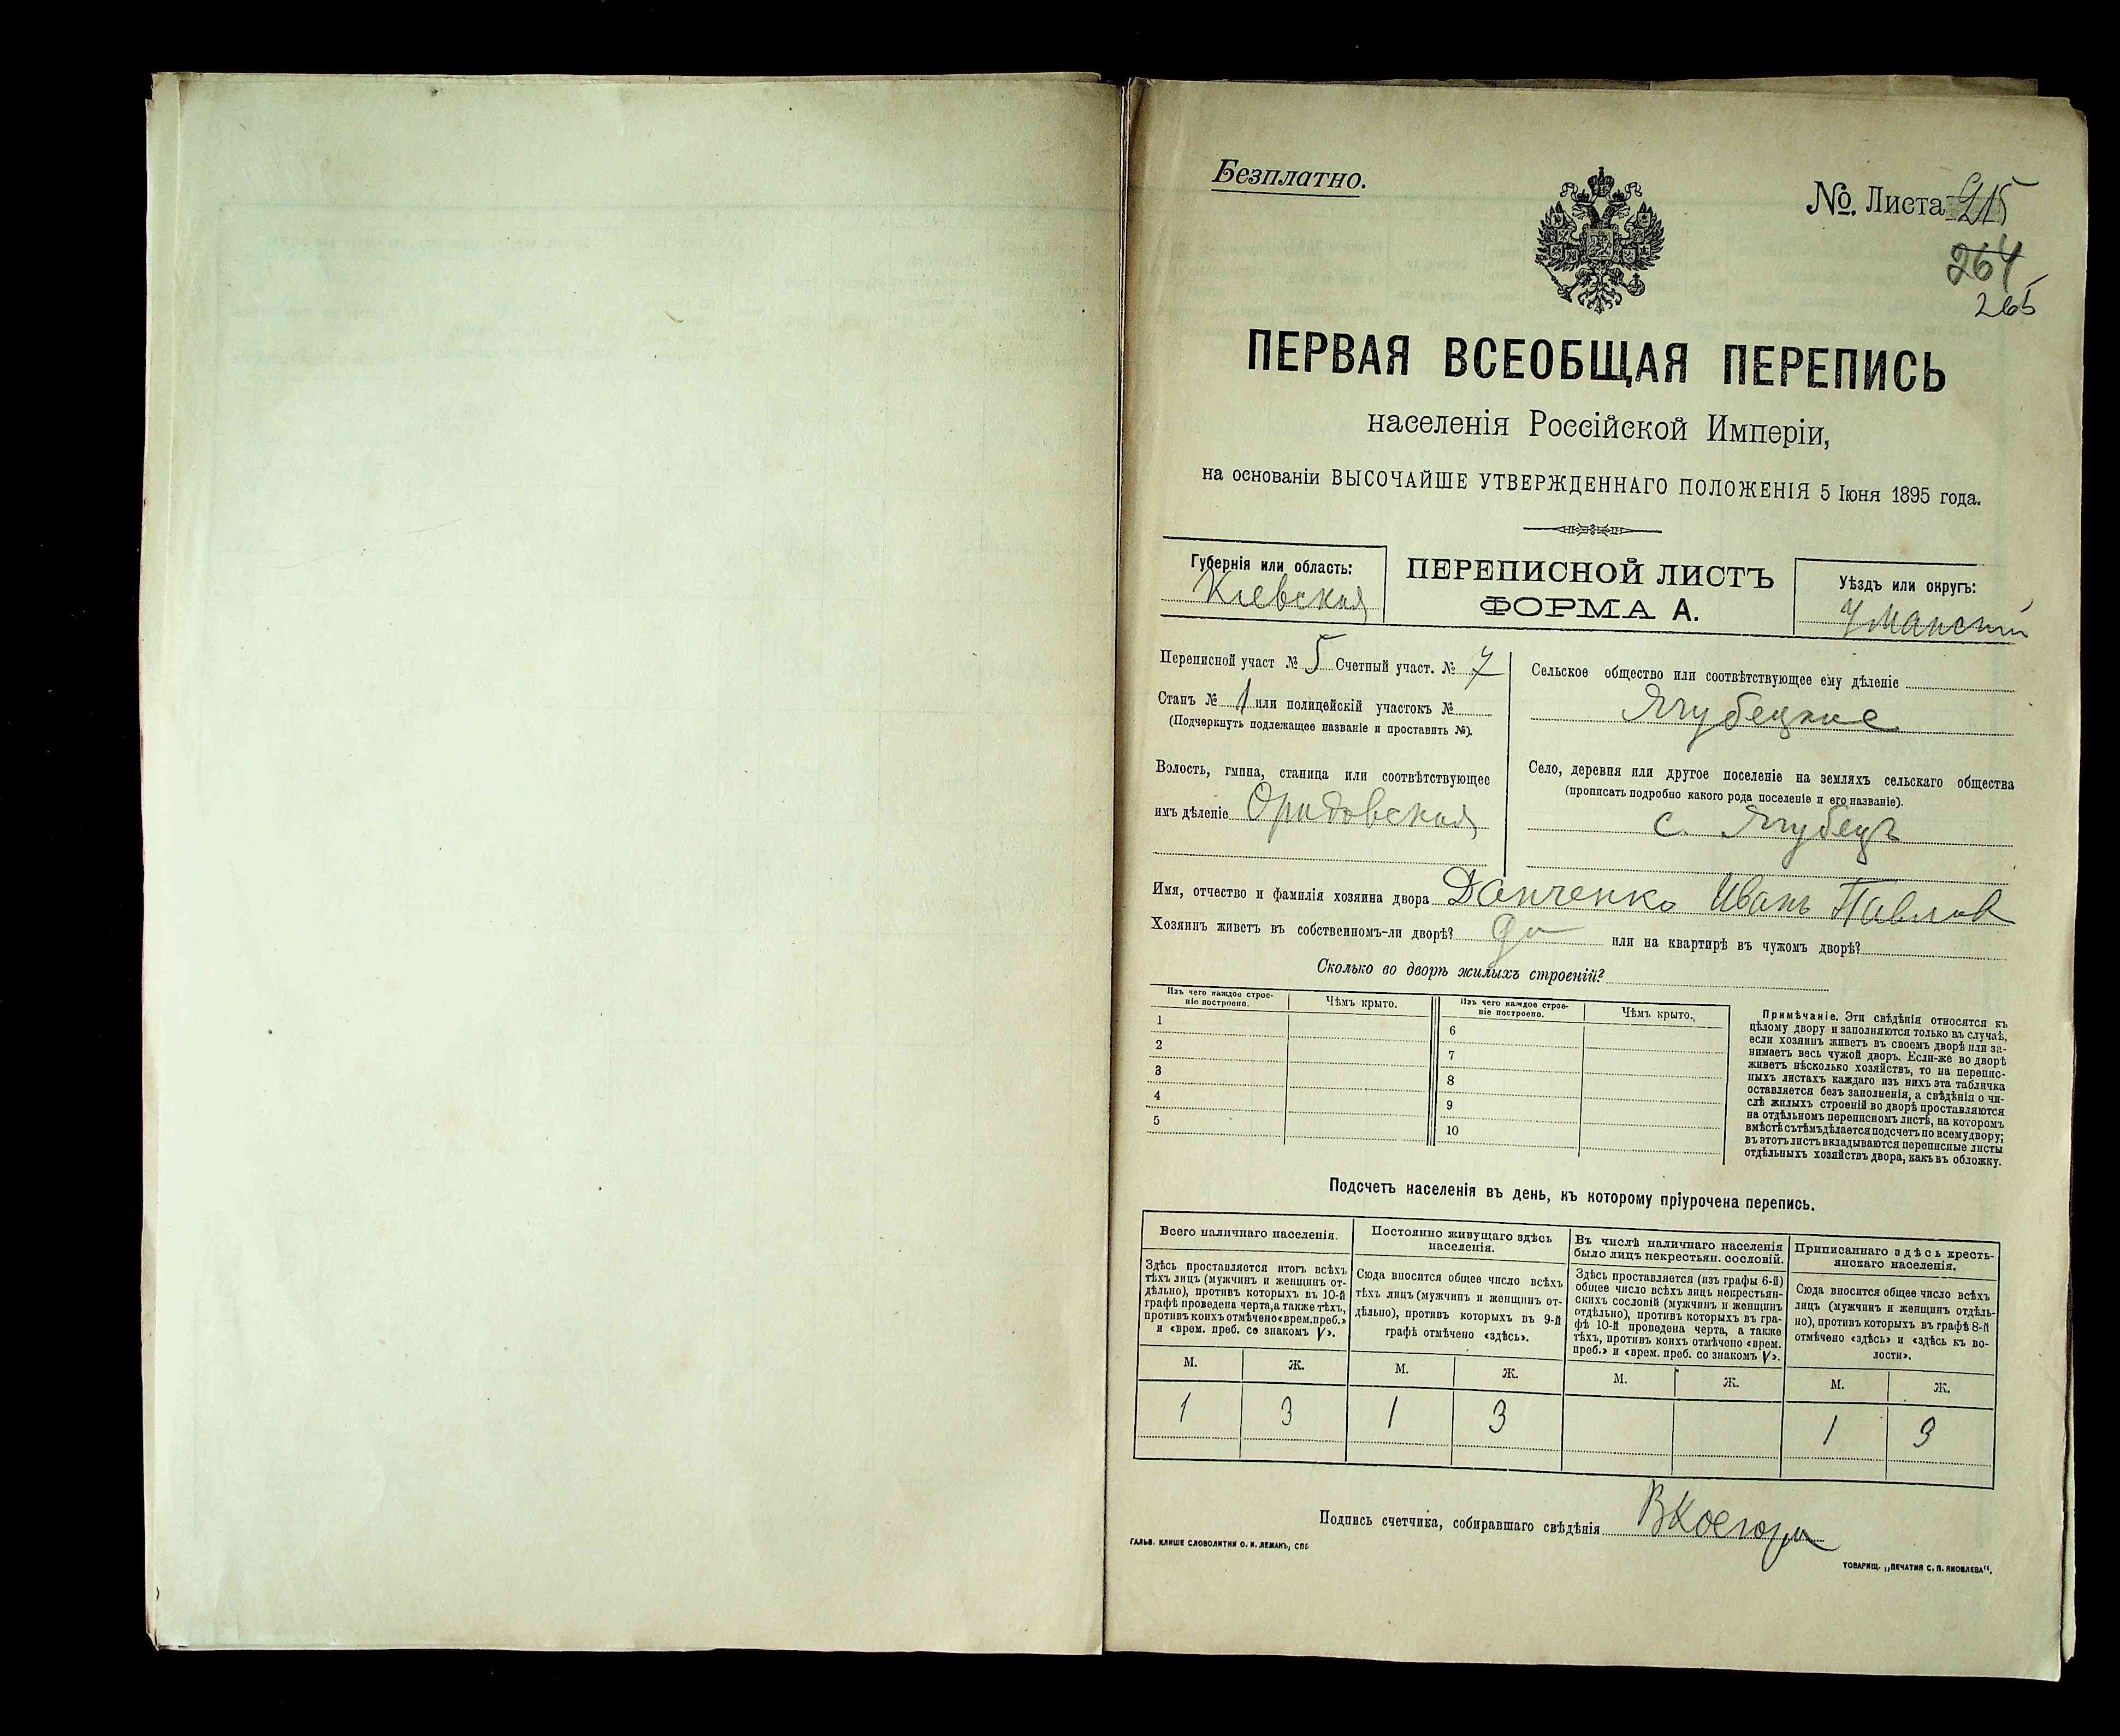 Безплатно.
№. Листа 215
264
265
ПЕРВАЯ ВСЕОБЩАЯ ПЕРЕПИСЬ
населенія Россійской Имперіи,
на основаніи ВЫСОЧАЙШЕ УТВЕРЖДЕННАГО ПОЛОЖЕНІЯ 5 Іюня 1895 года.
Губернія или область:
Кіевская
ПЕРЕПИСНОЙ ЛИСТЪ
ФОРМА А.
Уѣздъ или округъ:
Уманскій
Переписной участ № 5 Счетный участ. № 7
Станъ № 1 или полицейскій участокъ №
(Подчеркнуть подлежащее названіе и проставить №).
Волость, гмина, станица или соотвѣтствующее
имъ дѣленіе
Сельское общество или соотвѣтствующее ему дѣленіе
Ягубецкое
Село, деревня или другое поселеніе на земляхъ сельскаго общества
(прописать подробно какого рода поселеніе и его названіе).
с. Ягубецъ
Имя, отчество и фамилія хозяина двора Данченко Иванъ Павлов
Хозяинъ живетъ въ собственномъ-ли дворѣ? Да или на квартирѣ въ чужомъ дворѣ?
Сколько во дворѣ жилыхъ строеній?
Изъ чего каждое строе-
ніе построено.
Чѣмъ крыто.
Изъ чего каждое строе-
ніе построено.
Чѣмъ крыто.
1
2
3
4
5
6
7
8
9
10
Примѣчаніе. Эти свѣдѣнія относятся къ
цѣлому двору и заполняются только въ случаѣ,
если хозяинъ живетъ въ своемъ дворѣ или за-
нимаетъ весь чужой дворъ. Если-же во дворѣ
живетъ нѣсколько хозяйствъ, то на перепис-
ныхъ листахъ каждаго изъ нихъ эта табличка
оставляется безъ заполненія, а свѣдѣнія о чи-
слѣ жилыхъ строеній во дворѣ проставляются
на отдѣльномъ переписномъ листѣ, на которомъ
вмѣстѣ съ тѣмъ дѣлается подсчетъ по всему двору;
въ этотъ листъ вкладываются переписные листы
отдѣльныхъ хозяйствъ двора, какъ въ обложку.
Подсчетъ населенія въ день, къ которому пріурочена перепись.
Всего наличнаго населенія.
Здѣсь проставляется итогъ всѣхъ
тѣхъ лицъ (мужчинъ и женщинъ от-
дѣльно), противъ которыхъ въ 10-й
графѣ проведена черта, а также тѣхъ,
противъ коихъ отмѣчено «врем. преб.»
и «врем. преб. со знакомъ V».
Постоянно живущаго здѣсь
населенія.
Сюда вносится общее число всѣхъ
тѣхъ лицъ (мужчинъ и женщинъ от-
дѣльно), противъ которыхъ въ 9-й
графѣ отмѣчено «здѣсь».
Въ числѣ наличнаго населенія
было лицъ некрестьян. сословій.
Здѣсь проставляется (изъ графы 6-й)
общее число всѣхъ лицъ некрестьян-
скихъ сословій (мужчинъ и женщинъ
отдѣльно), противъ которыхъ въ гра-
фѣ 10-й проведена черта, а также
тѣхъ, противъ коихъ отмѣчено «врем.
преб.» и «врем. преб. со знакомъ V».
Приписаннаго здѣсь кресть-
янскаго населенія.
Сюда вносится общее число всѣхъ
лицъ (мужчинъ и женщинъ отдѣль-
но), противъ которыхъ въ графѣ 8-й
отмѣчено «здѣсь» и «здѣсь къ во-
лости».
М. Ж. М. Ж. М. Ж. М. Ж.
1 3 1 3 1 3
Подпись счетчика, собиравшаго свѣдѣнія
ГАЛЬВ. КЛИШЕ СЛОВОЛИТНИ О. И. ЛЕМАНЪ, СПБ
ТОВАРИЩ. „ПЕЧАТНЯ С. П. ЯКОВЛЕВА“.